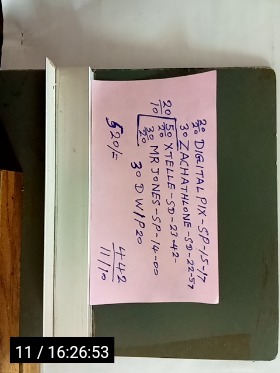 20/20 DIGITAL PIX-SP-15-17
30 ZACHATHLONE-SD-22-57
20/10 50/20 XTELLE-SD-23-42-
30/20 MR JONES-SP-14-00
30 DWIP20
520/-
442
11/10
11 / 16:26:53